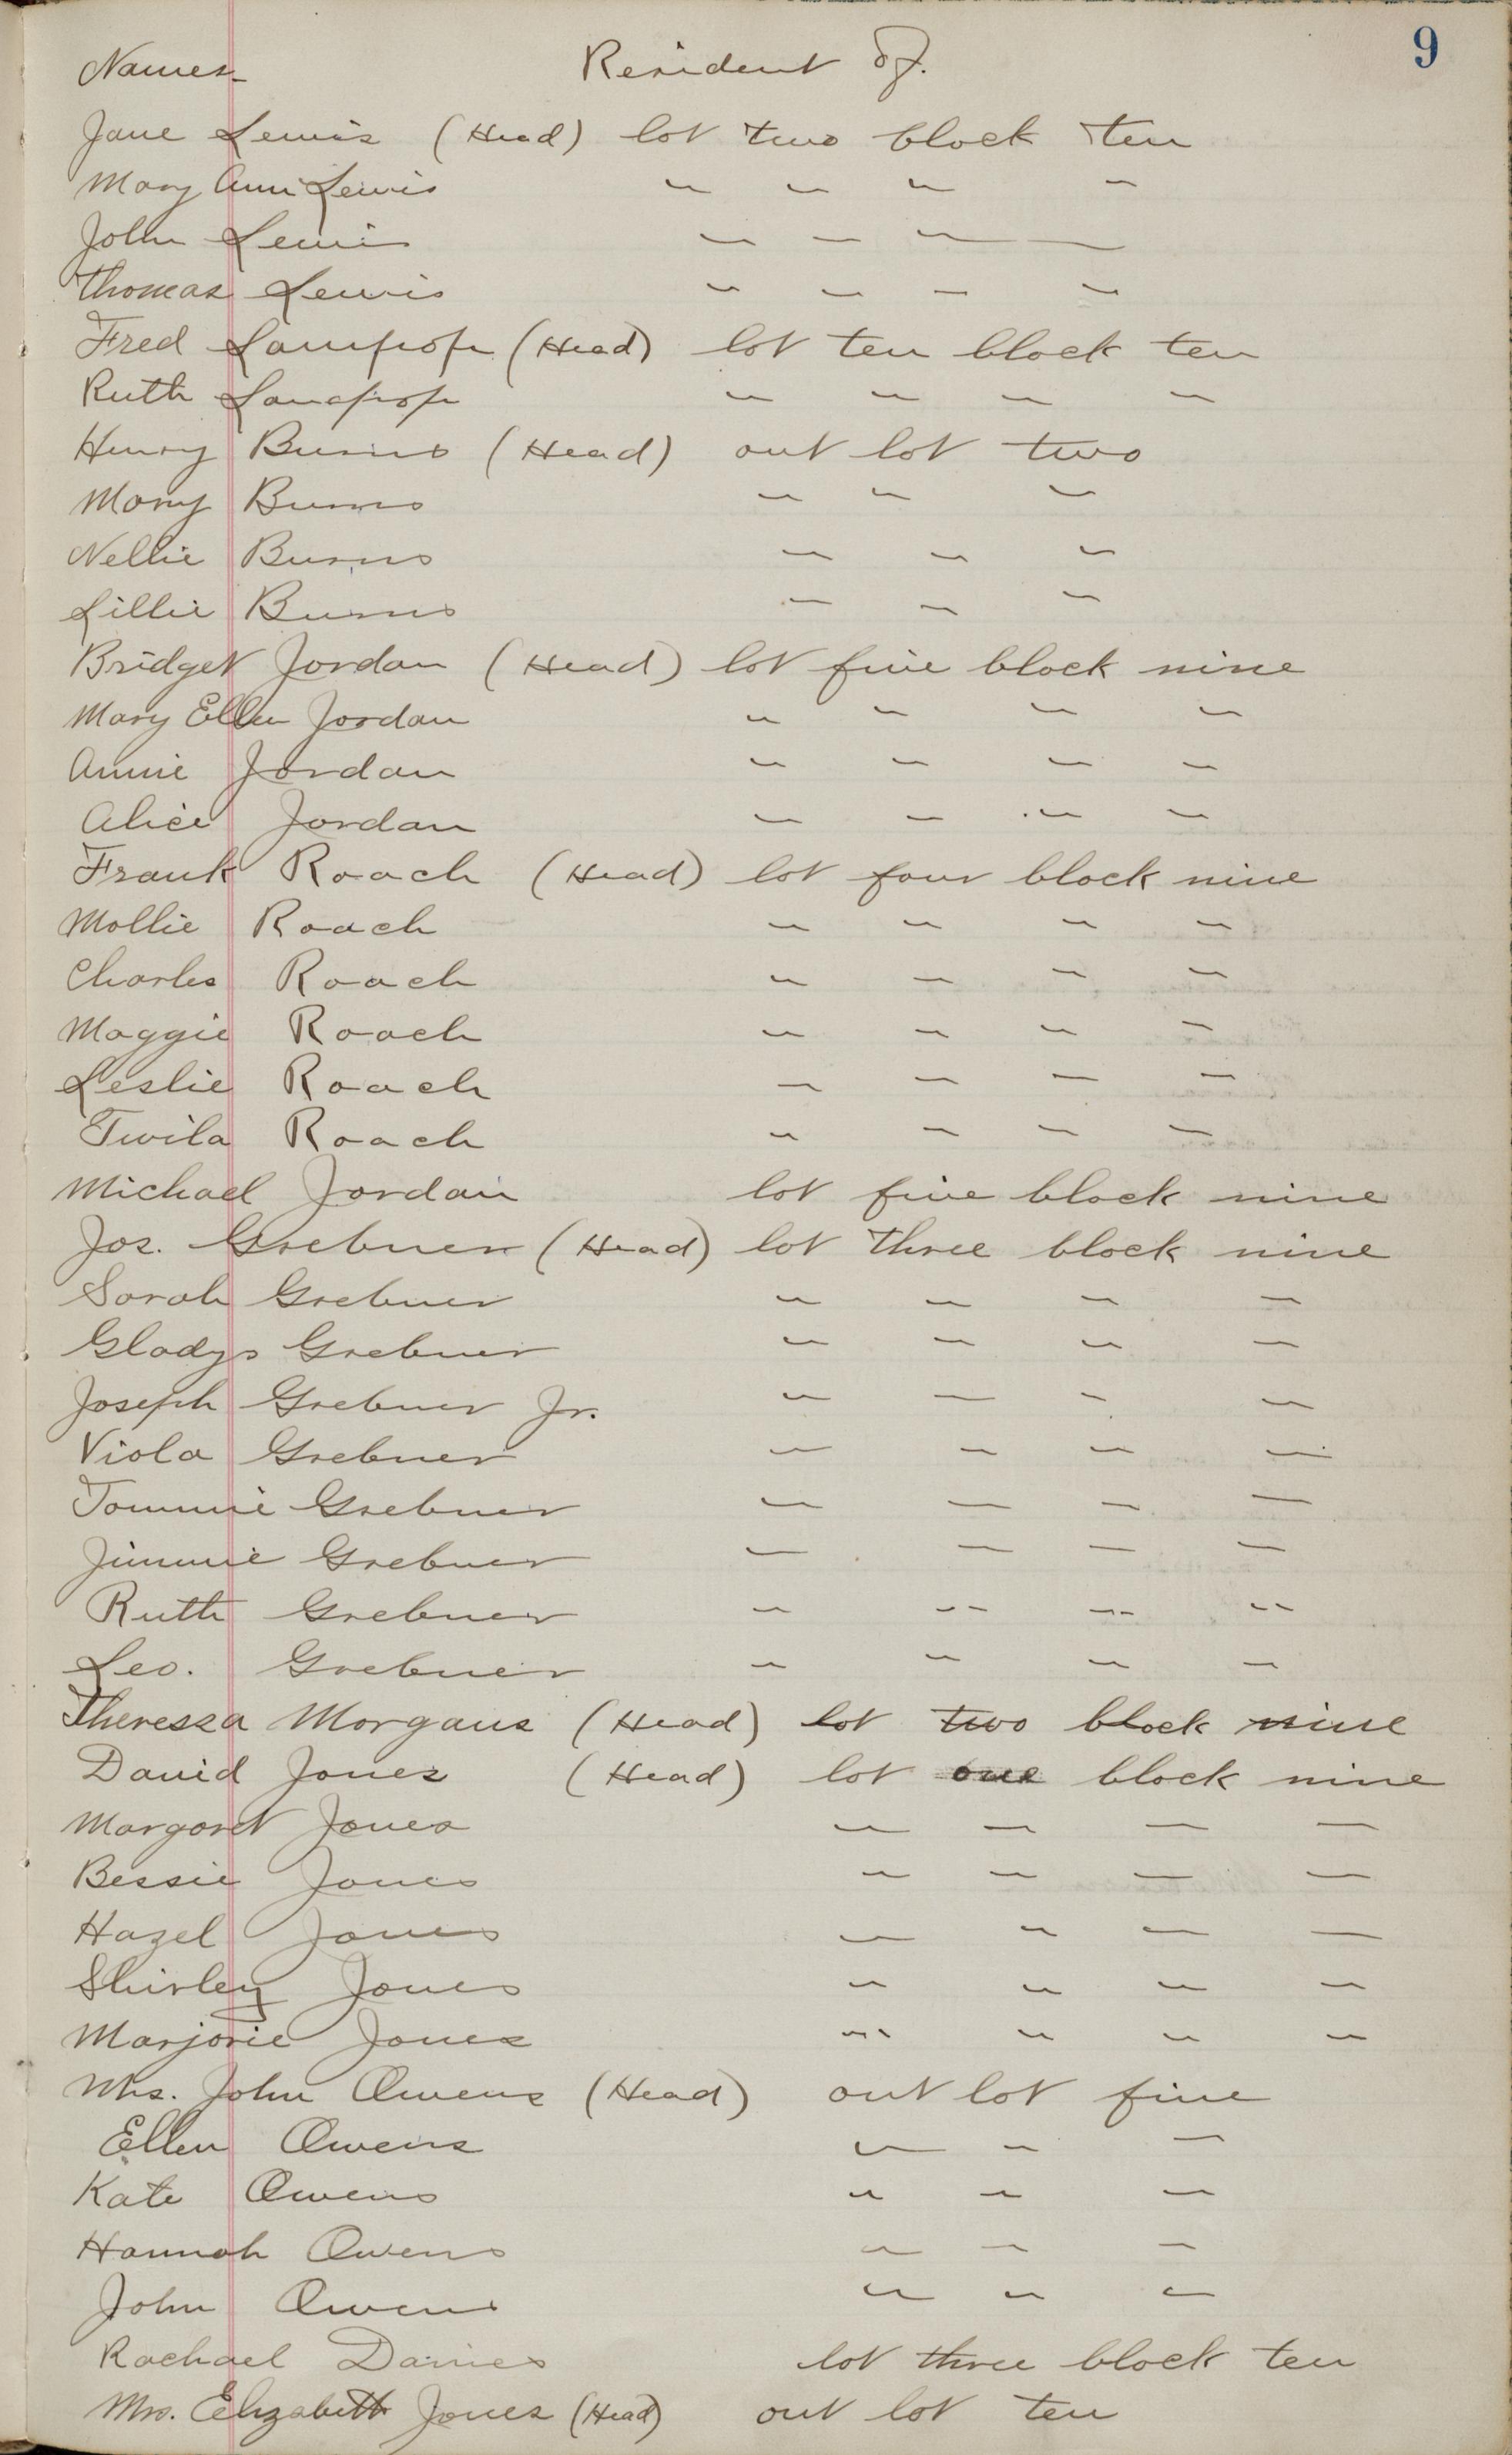 9
Names Resident of.
Jane Lewis (Head) lot two block ten
Mary Ann Lewis " " " "
John Lewis " " " "
Thomas Lewis " " " "
Fred Lamprop (Head) lot ten block ten
Ruth Lamprop " " " "
Henry Burns (Head) out lot two
Mary Burns " " "
Nellie Burns " " "
Lillie Burns " " "
Bridget Jordan (Head) lot five block nine
Mary Ellen Jordan " " " "
Annie Jordan " " " "
Alice Jordan " " " "
Frank Roach (Head) lot four block nine
Mollie Roach " " " "
Charles Roach " " " "
Maggie Roach " " " "
Leslie Roach " " " "
Twila Roach " " " "
Michael Jordan lot five block nine
Jos. Grebner (Head) lot three block nine
Sarah Grebner " " " "
Gladys Grebner " " " "
Joseph Grebner Jr. " " " "
Viola Grebner " " " "
Tommie Grebner " " " "
Jimmie Grebner " " " "
Ruth Grebner " " " "
Leo. Grebner " " " "
Theressa Morgans (Head) lot two block nine
David Jones (Head) lot one block nine
Margaret Jones " " " "
Bessie Jones " " " "
Hazel Jones " " " "
Shirley Jones " " " "
Marjorie Jones " " " "
Mrs. John Owens (Head) out lot five
Ellen Owens " " "
Kate Owens " " "
Hannah Owens " " "
John Owens " " "
Rachael Davies lot three block ten
Mrs. Elizabeth Jones (Head) out lot ten